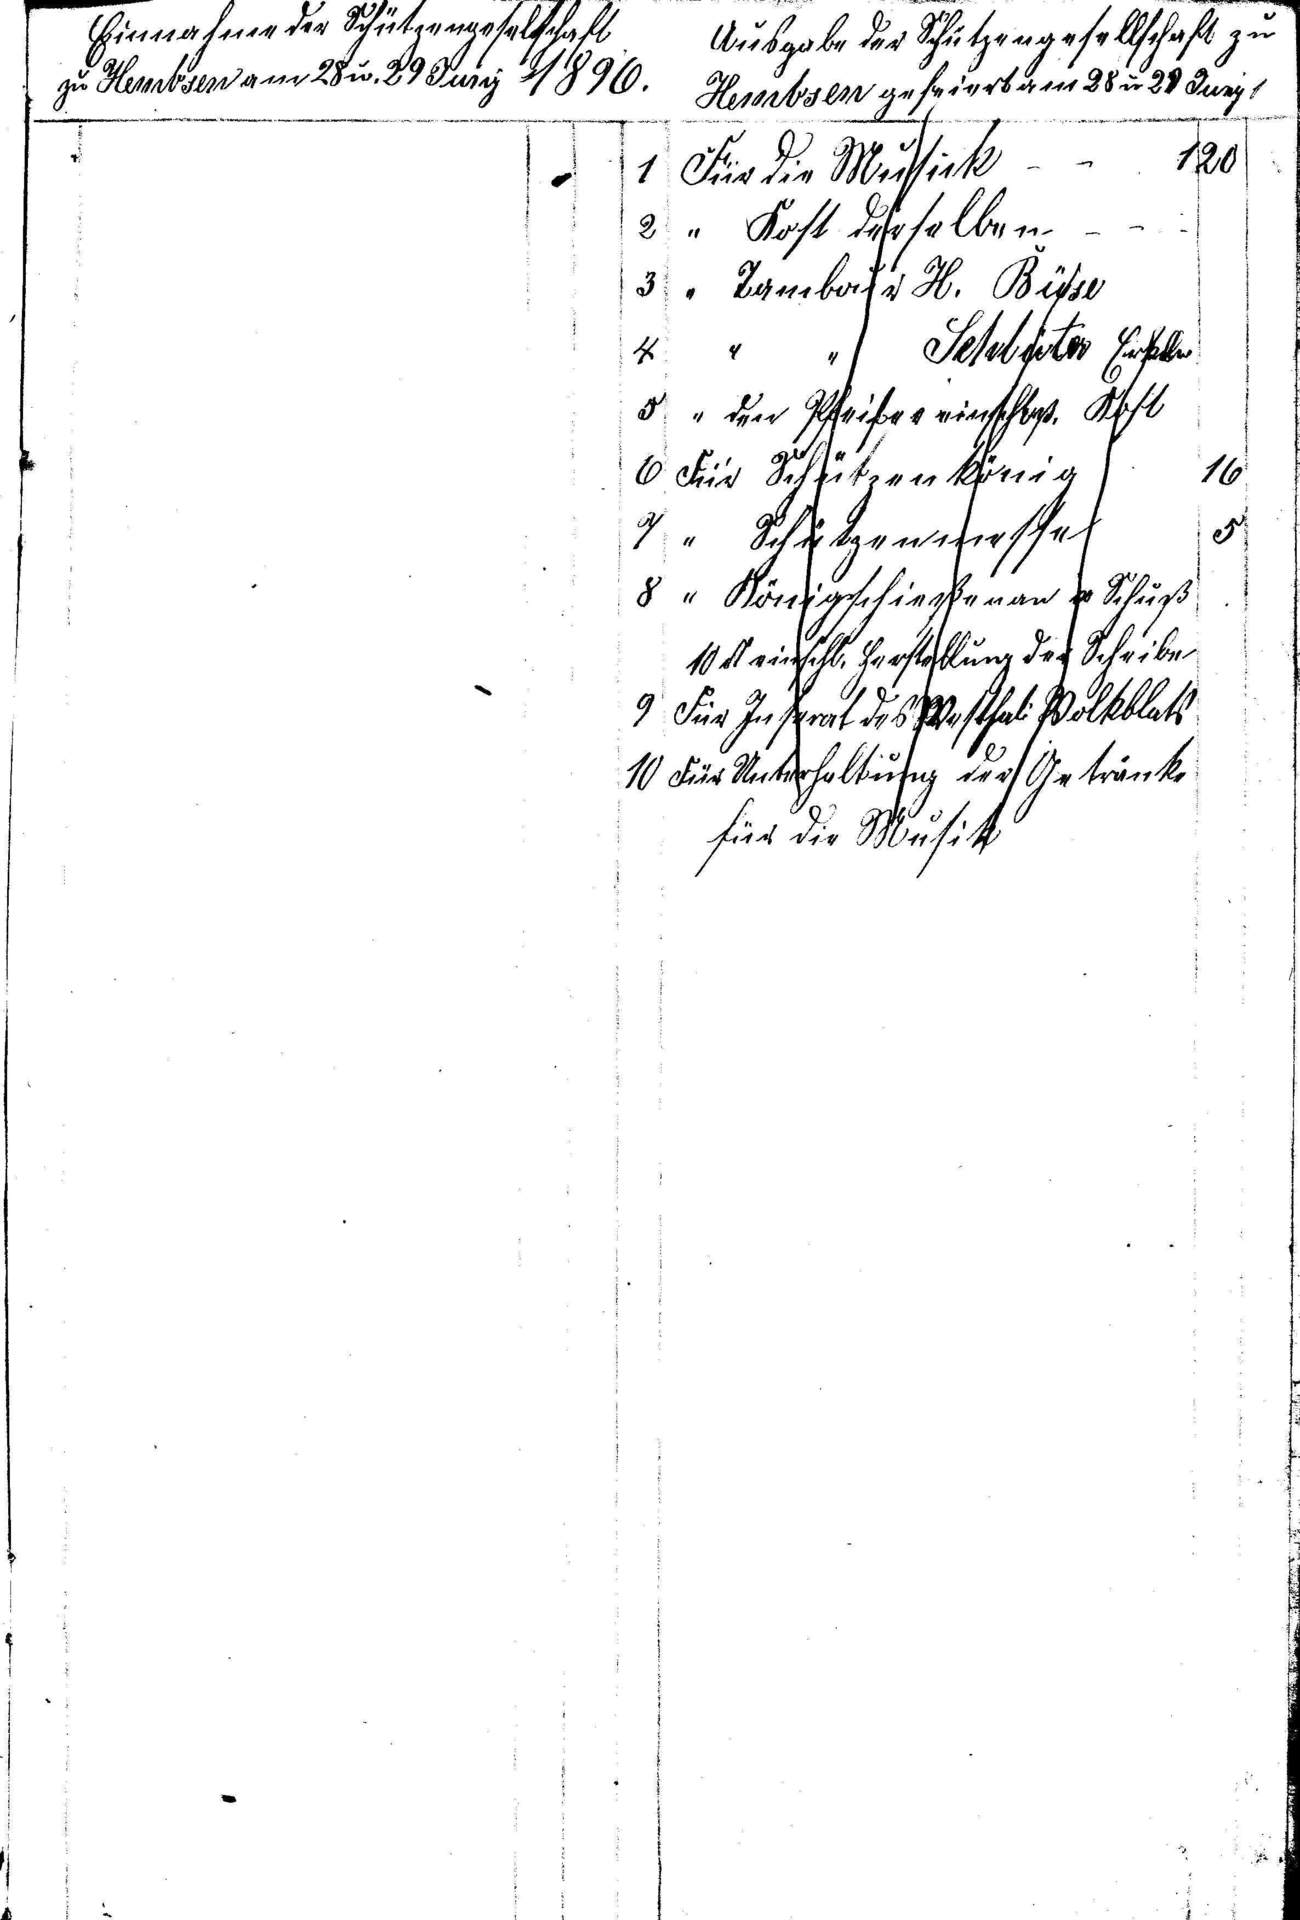 Einnahme der Schützengesellschaft
zu Hembsen am 28 u. 29 Juny 1896.
Ausgabe der Schützengesellschaft zu
Hembsen gefeiert am 28 u 29 Juny
1 Für die Musick - - 120
2 " Kost derselben - - -
3 " Tambour H. Büse
4 " " Schlüter
5 " den Pfeifer einschl. Kost
6 Für Schützenkönig 16
7 " Schützenmesse 5
8 " Königschießen an Schuß
10 einschl. Herstellung der Scheibe
9 Für Inserat des Westfäl. Volkblats
10 Für Unterhaltung der Getränke
für die Musik